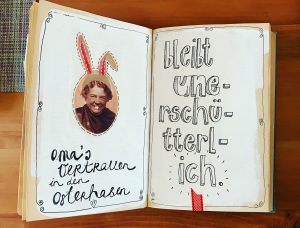 Oma's
Vertrauen
in den
Osterhasen
bleibt
une-
rschü-
tterl-
ich.